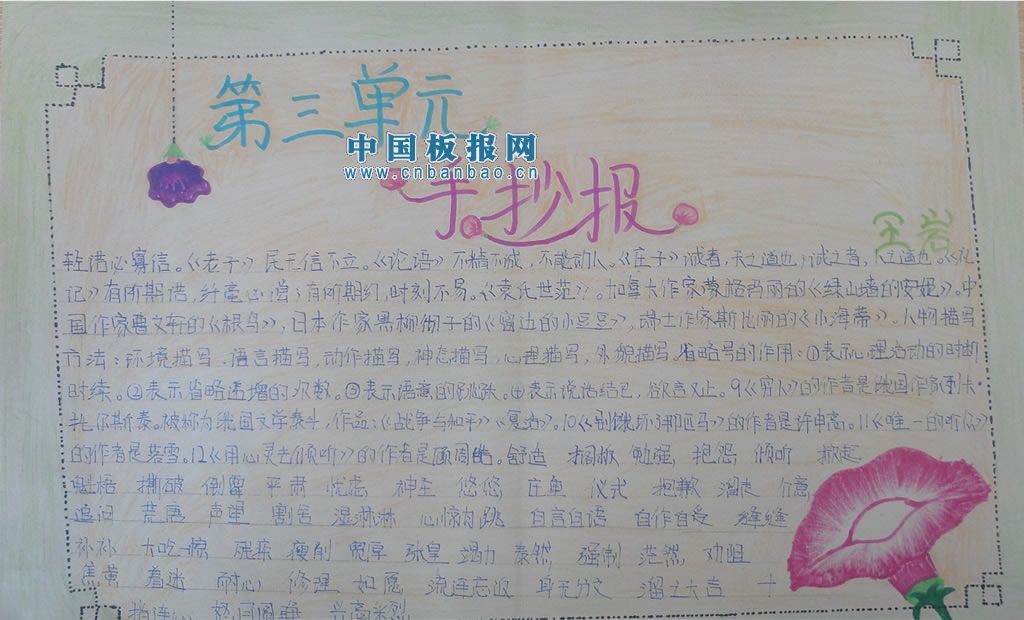 第三单元
中国板报网
www.cnbanbao.cn
手抄报
王岩
轻诺必寡信。《老子》民无信不立。《论语》不精不成,不能动人。《庄子》诚者,天之道也;诚之者,人之道也。《礼
记》有所期诺,纤毫必偿;有所期约,时刻不易。《袁氏世范》。加拿大作家蒙格玛丽的《绿山墙的安妮》。中
国作家曹文轩的《根鸟》,日本作家黑柳彻子的《窗边的小豆豆》,瑞士作家斯比丽的《小海蒂》。人物描写
方法:环境描写,语言描写,动作描写,神态描写,心理描写,外貌描写。省略号的作用:①表示心理活动的时断
时续。②表示省略递增的次数。③表示语意的跳跃。④表示说话结巴,欲言又止。9《穷人》的作者是俄国作家列夫
托尔斯泰。被称为俄国文学泰斗,作品:《战争与和平》《复活》。10《别饿坏了那匹马》的作者是许申高。11《唯一的听众》
的作者是落雪。12《用心灵去倾听》的作者是顾周皓。舒适 搁板 勉强 抱怨 倾听 掀起
魁梧 撕破 倒霉 严肃 忧虑 神圣 悠悠 庄重 仪式 抱歉 溜走 介意
追问 荒唐 声望 割舍 湿淋淋 心惊肉跳 自言自语 自作自受 缝缝
补补 大吃一惊 瘦削 宽厚 张皇 竭力 泰然 强制 茫然 劝阻
焦黄 着迷 耐心 修理 如愿 流连忘返 身无分文 溜之大吉 十
指连心 兴高采烈